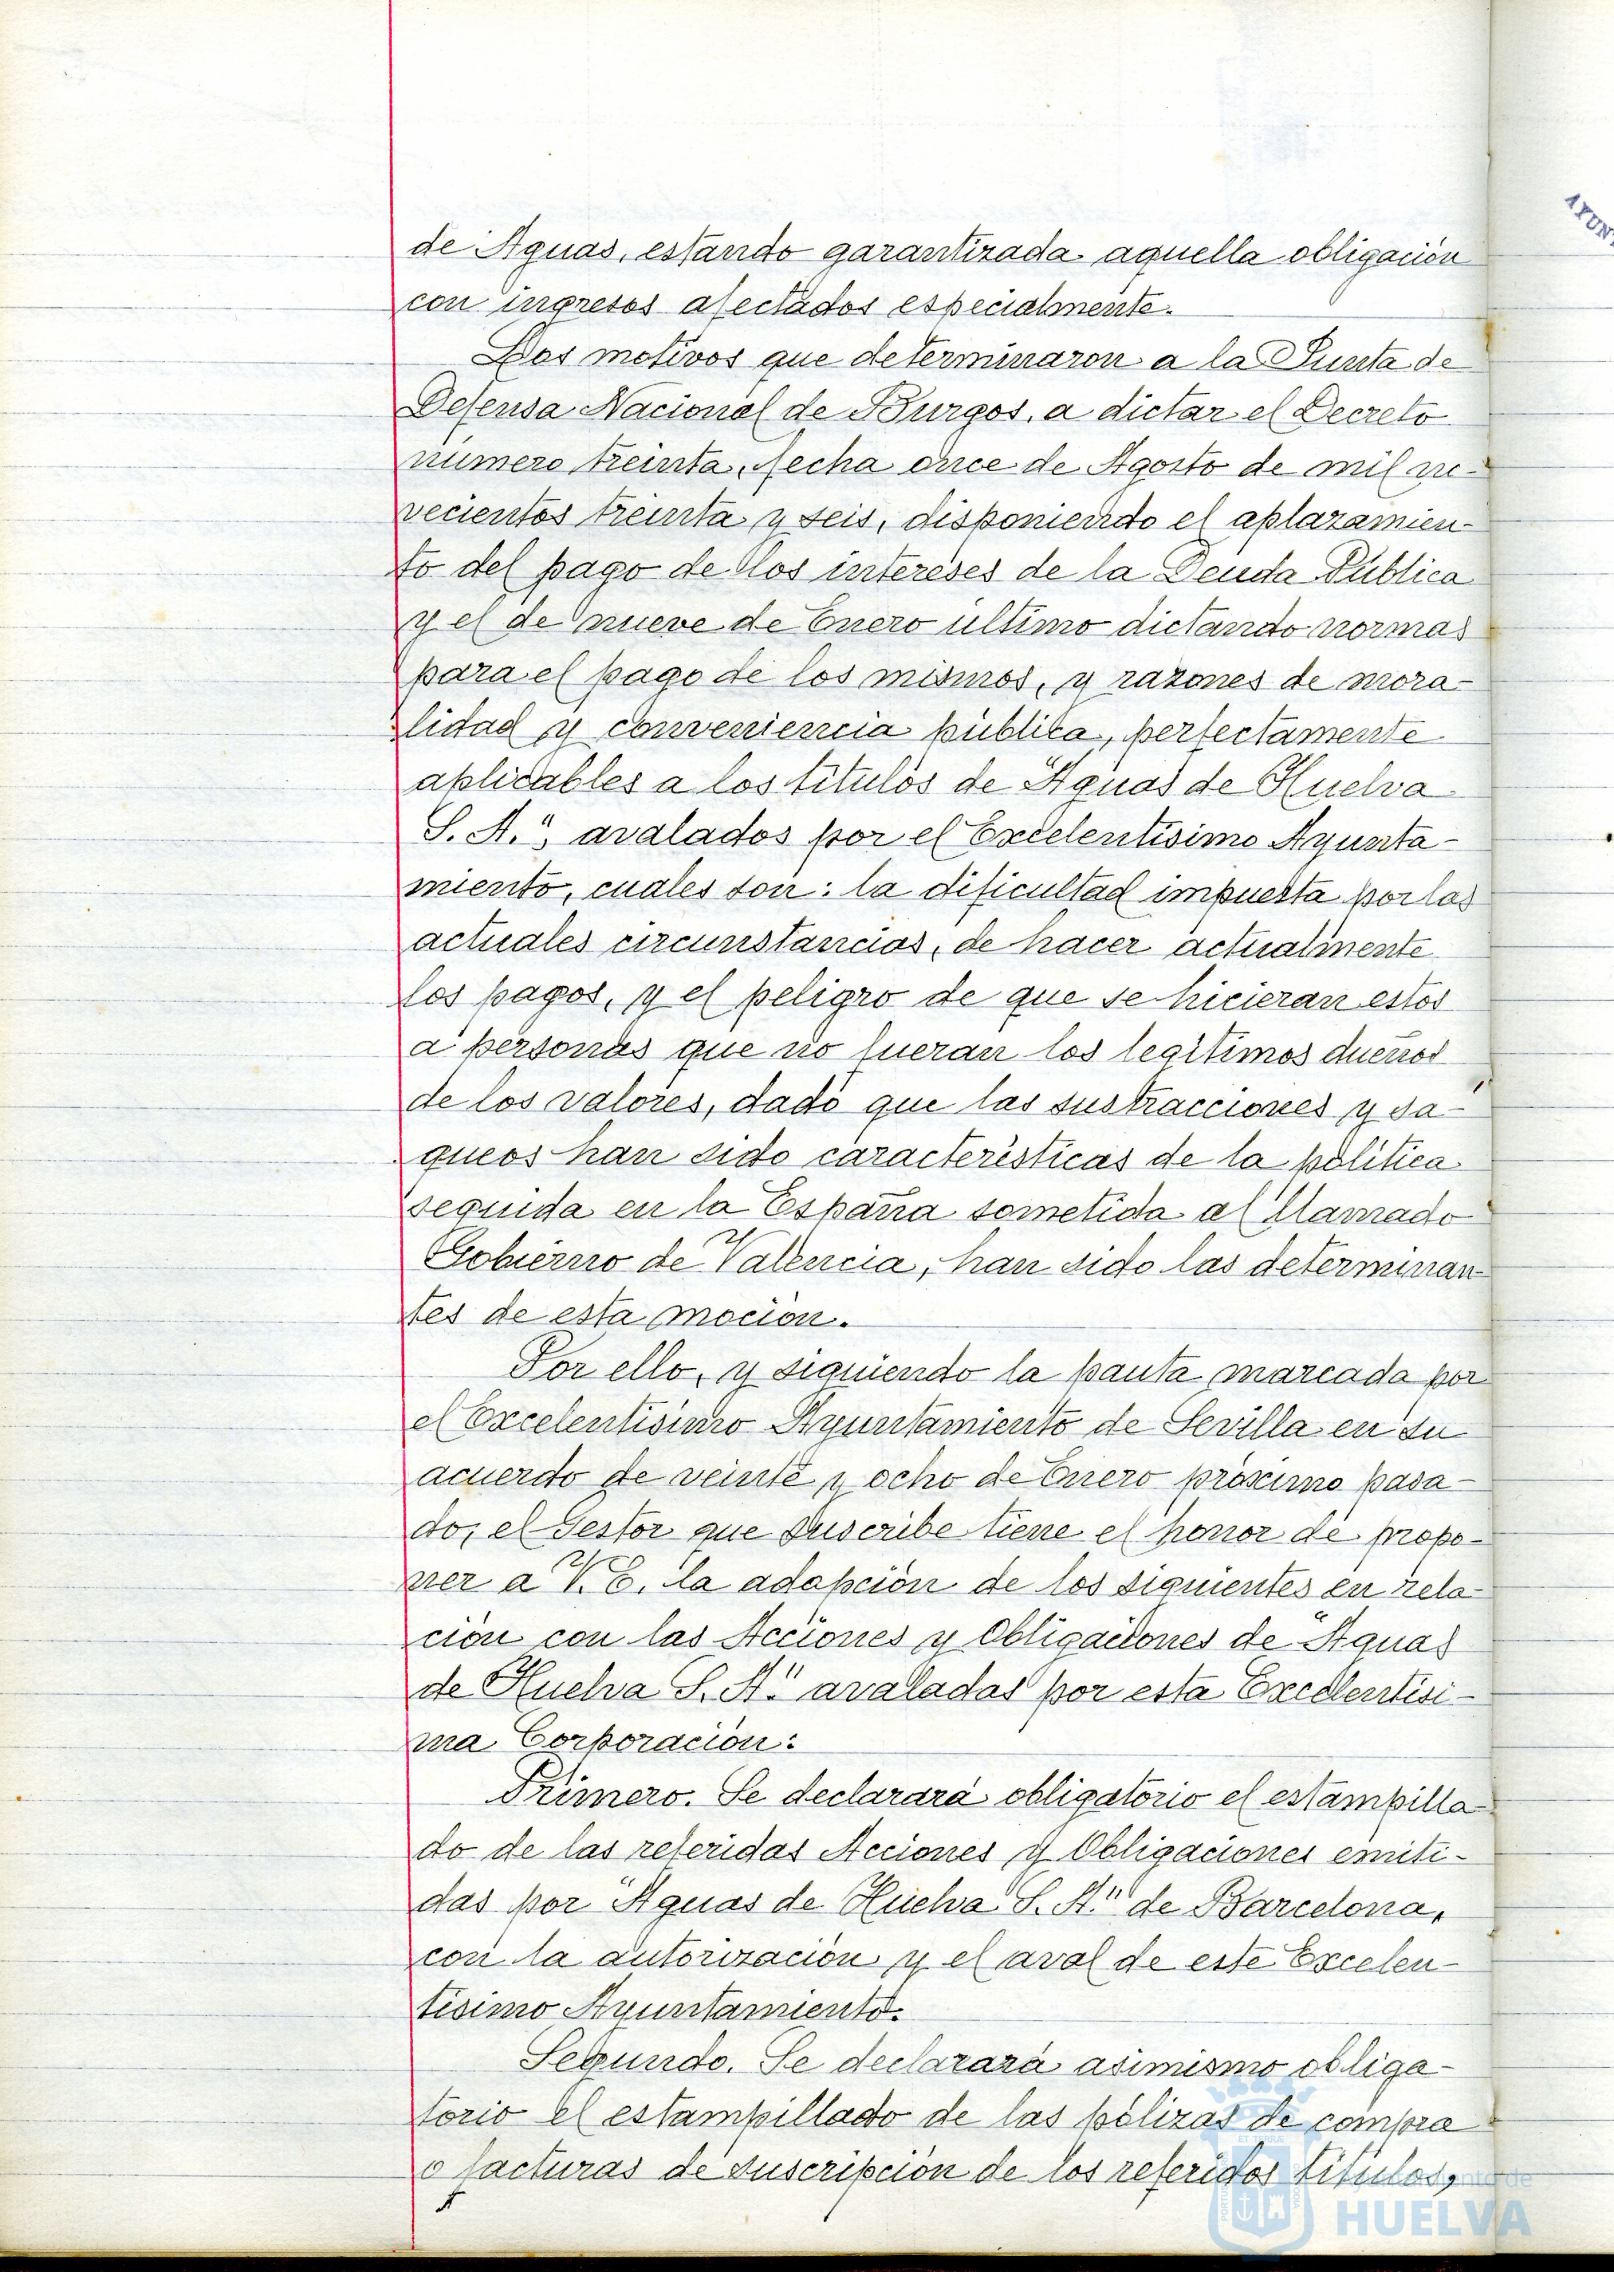 de Aguas, estando garantizada aquella obligación
con ingresos afectados especialmente.
Los motivos que determinaron a la Junta de
Defensa Nacional de Burgos, a dictar el Decreto
número treinta, fecha once de Agosto de mil no-
vecientos treinta y seis, disponiendo el aplazamien-
to del pago de los intereses de la Deuda Pública
y el de nueve de Enero último dictando normas
para el pago de los mismos, y razones de mora-
lidad y conveniencia pública, perfectamente
aplicables a los títulos de "Aguas de Huelva
S. A.", avalados por el Excelentísimo Ayunta-
miento, cuales son: la dificultad impuesta por las
actuales circunstancias, de hacer actualmente
los pagos, y el peligro de que se hicieran estos
a personas que no fueran los legítimos dueños
de los valores, dado que las sustracciones y sa-
queos han sido características de la política
seguida en la España sometida al llamado
Gobierno de Valencia, han sido las determinan-
tes de esta moción.
Por ello, y siguiendo la pauta marcada por
el Excelentísimo Ayuntamiento de Sevilla en su
acuerdo de veinte y ocho de Enero próximo pasa-
do, el Gestor que suscribe tiene el honor de propo-
ner a V. E. la adopción de los siguientes en rela-
ción con las Acciones y Obligaciones de "Aguas
de Huelva S. A." avaladas por esta Excelentísi-
ma Corporación:
Primero. Se declarará obligatorio el estampilla-
do de las referidas Acciones y Obligaciones emiti-
das por "Aguas de Huelva S. A." de Barcelona,
con la autorización y el aval de este Excelen-
tísimo Ayuntamiento.
Segundo. Se declarará asimismo obliga-
torio el estampillado de las pólizas de compra
o facturas de suscripción de los referidos títulos,
HUELVA